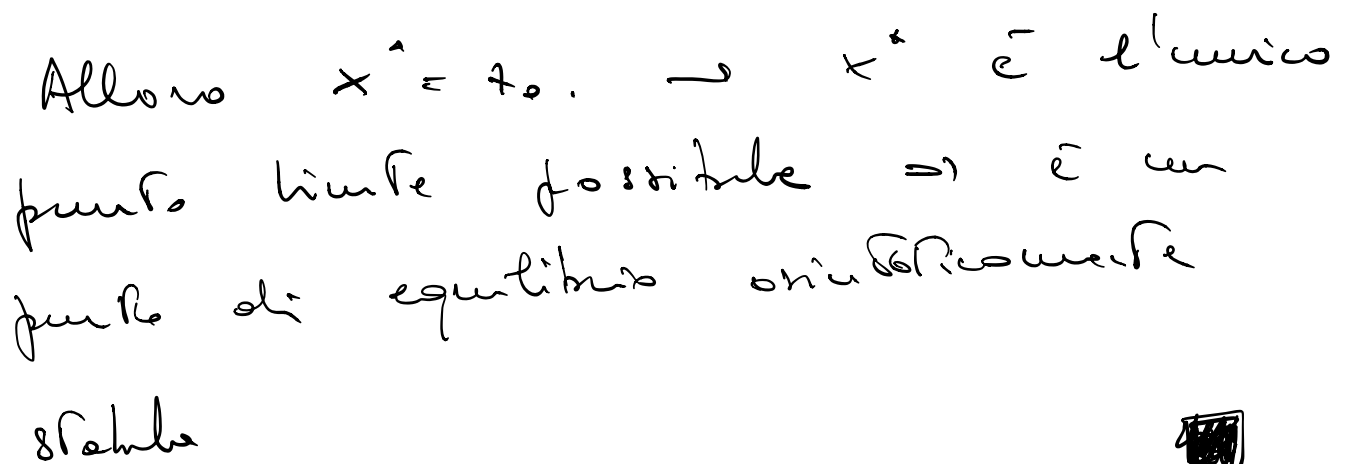 Allora x* = x₀. → x* è l'unico
punto limite possibile ⇒ è un
punto di equilibrio asintoticamente
stabile